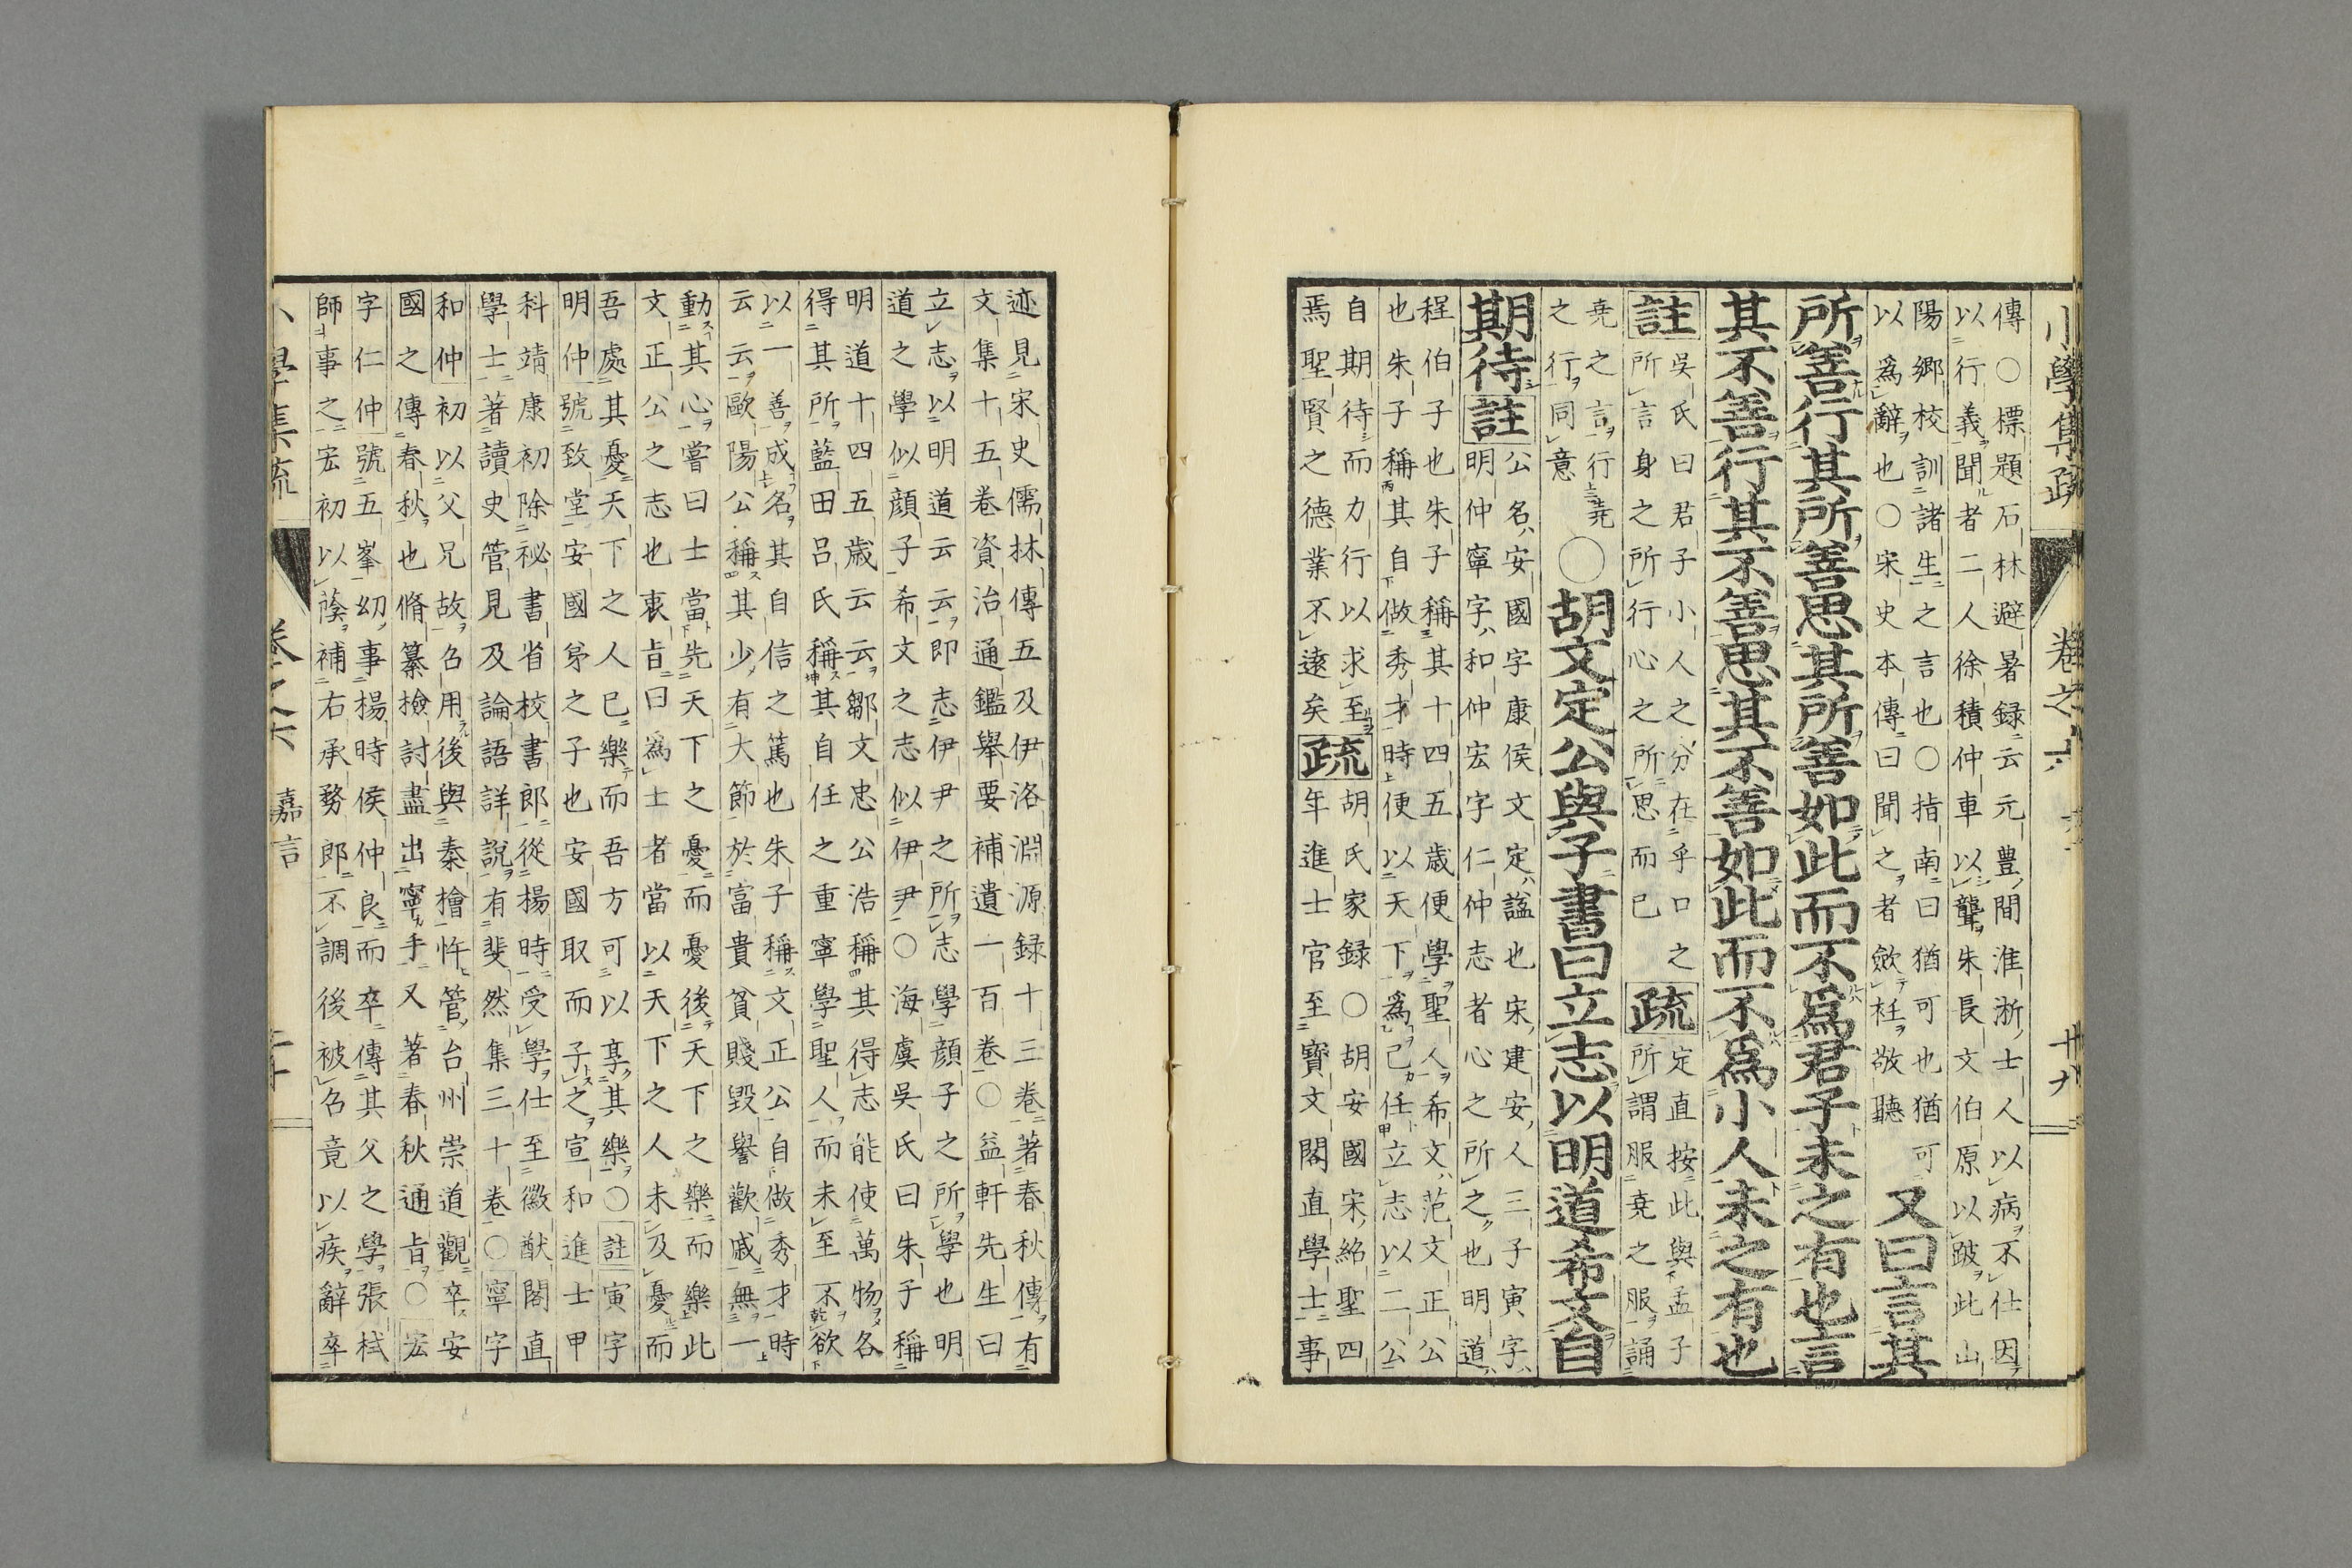 小學集疏 卷之六 十九
傳○標題石林避暑録云元豊間淮浙士人以病不仕因
以行義聞者二人徐積仲車以聾朱長文伯原以跛此山
陽郷校訓諸生之言也○指南曰猶可也猶可
以爲辭也○宋史本傳曰聞之者斂衽敬聽
又曰言其
所善行其所善思其所善如此而不爲君子未之有也言
其不善行其不善思其不善如此而不爲小人未之有也
註
吳氏曰君子小人之分在乎口之
所言身之所行心之所思而已
疏
定直按此與孟子
所謂服堯之服誦
堯之言行堯
之行同意
○胡文定公與子書曰立志以明道希文自
期待
註
公名安國字康侯文定諡也宋建安人三子寅字
明仲寧字和仲宏字仁仲志者心之所之也明道
程伯子也朱子稱其十四五歳便學聖人希文范文正公
也朱子稱其自做秀才時便以天下爲己任立志以二公
自期待而力行以求至
焉聖賢之德業不遠矣
疏
胡氏家録○胡安國宋紹聖四
年進士官至寶文閣直學士事
迹見宋史儒林傳五及伊洛淵源録十三卷著春秋傳有
文集十五卷資治通鑑舉要補遺一百卷○益軒先生曰
立志以明道云云即志伊尹之所志學顔子之所學也明
道之學似顔子希文之志似伊尹○海虞吳氏曰朱子稱
明道十四五歳云云鄒文忠公浩稱其得志能使萬物各
得其所藍田呂氏稱其自任之重寧學聖人而未至不欲
以一善成名其自信之篤也朱子稱文正公自做秀才時
云云歐陽公稱其少有大節於富貴貧賤毀譽歡戚無一
動其心嘗曰士當先天下之憂而憂後天下之樂而樂此
文正公之志也衷旨曰爲士者當以天下之人未及憂而
吾處其憂天下之人已樂而吾方可以享其樂○註寅字
明仲號致堂安國弟之子也安國取而子之宣和進士甲
科靖康初除祕書省校書郎從楊時受學仕至徽猷閣直
學士著讀史管見及論語詳説有斐然集三十卷○寧字
和仲初以父兄故召用後與秦檜忤管台州崇道觀卒安
國之傳春秋也脩纂檢討盡出寧手又著春秋通旨○宏
字仁仲號五峯幼事楊時侯仲良而卒傳其父之學張栻
師事之宏初以蔭補右承務郎不調後被召竟以疾辭卒
小學集疏 卷之六 嘉言